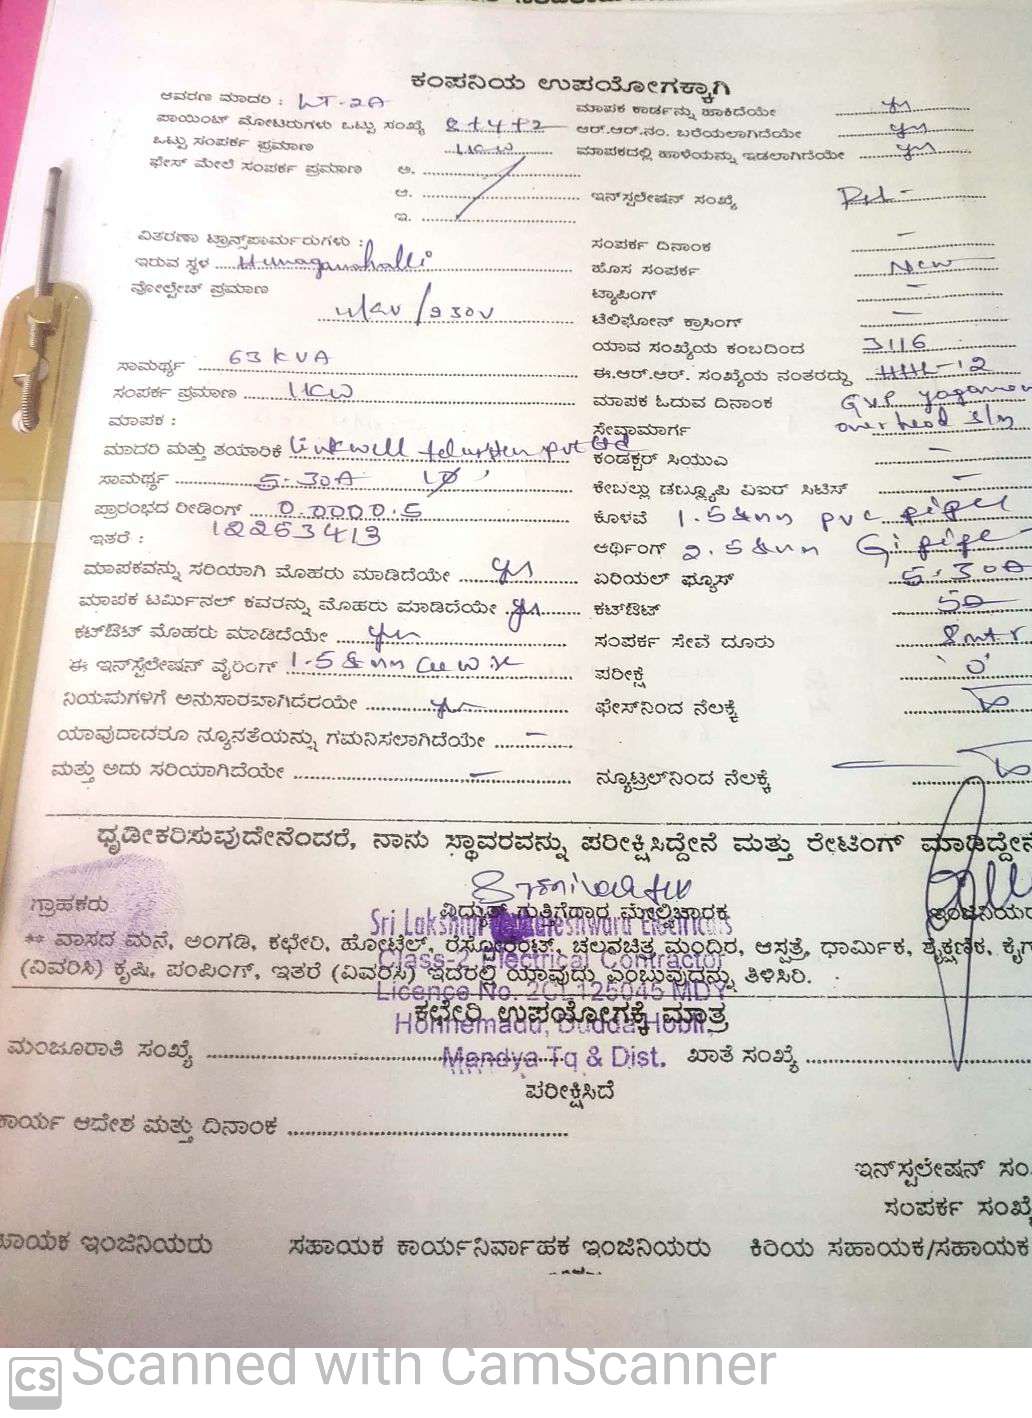 ಕಂಪನಿಯ ಉಪಯೋಗಕ್ಕಾಗಿ
ಆವರಣ ಮಾದರಿ : LT-2A ಮಾಪಕ ಕಾರ್ಡನ್ನು ಹಾಕಿದೆಯೇ yes
ಪಾಯಿಂಟ್ ಮೋಟರುಗಳು ಒಟ್ಟು ಸಂಖ್ಯೆ 8+4+2 ಆರ್.ಆರ್.ನಂ. ಬರೆಯಲಾಗಿದೆಯೇ yes
ಒಟ್ಟು ಸಂಪರ್ಕ ಪ್ರಮಾಣ 1KW ಮಾಪಕದಲ್ಲಿ ಹಾಳೆಯನ್ನು ಇಡಲಾಗಿದೆಯೇ yes
ಫೇಸ್ ಮೇಲೆ ಸಂಪರ್ಕ ಪ್ರಮಾಣ ಅ.
ಆ. ಇನ್‌ಸ್ಟಲೇಷನ್ ಸಂಖ್ಯೆ
ಇ.
ವಿತರಣಾ ಟ್ರಾನ್ಸ್‌ಫಾರ್ಮರುಗಳು : ಸಂಪರ್ಕ ದಿನಾಂಕ –
ಇರುವ ಸ್ಥಳ Hunaganahalli ಹೊಸ ಸಂಪರ್ಕ New
ವೋಲ್ಟೇಜ್ ಪ್ರಮಾಣ 11KV/230V ಟ್ಯಾಪಿಂಗ್ –
ಟೆಲಿಫೋನ್ ಕ್ರಾಸಿಂಗ್ –
ಯಾವ ಸಂಖ್ಯೆಯ ಕಂಬದಿಂದ 3116
ಸಾಮರ್ಥ್ಯ 63 KVA ಈ.ಆರ್.ಆರ್. ಸಂಖ್ಯೆಯ ನಂತರದ್ದು HHL-12
ಸಂಪರ್ಕ ಪ್ರಮಾಣ 1KW ಮಾಪಕ ಓದುವ ದಿನಾಂಕ
ಮಾಪಕ : ಸೇವಾಮಾರ್ಗ overhead
ಮಾದರಿ ಮತ್ತು ತಯಾರಿಕೆ Linkwell pvt Ltd ಕಂಡಕ್ಟರ್ ಸಿಯುವಿ –
ಸಾಮರ್ಥ್ಯ 5-30A 1Ø ಕೇಬಲ್ಲು ಡಬ್ಲ್ಯೂಪಿ ಪಿಐರ್ ಸಿಟಿಸ್ –
ಪ್ರಾರಂಭದ ರೀಡಿಂಗ್ 0.0000.5 ಕೊಳವೆ 1.5 pvc pipe
ಇತರೆ : 12253413 ಅರ್ಥಿಂಗ್ 2.5 G.i pipe
ಮಾಪಕವನ್ನು ಸರಿಯಾಗಿ ಮೊಹರು ಮಾಡಿದೆಯೇ yes ಏರಿಯಲ್ ಫ್ಯೂಸ್ 5-30A
ಮಾಪಕ ಟರ್ಮಿನಲ್ ಕವರನ್ನು ಮೊಹರು ಮಾಡಿದೆಯೇ yes ಕಟ್‌ಔಟ್ 50
ಕಟ್‌ಔಟ್ ಮೊಹರು ಮಾಡಿದೆಯೇ yes ಸಂಪರ್ಕ ಸೇವೆ ದೂರು 8mtr
ಈ ಇನ್‌ಸ್ಟಲೇಷನ್ ವೈರಿಂಗ್ 1.5 ಪರೀಕ್ಷೆ '0'
ನಿಯಮಗಳಿಗೆ ಅನುಸಾರವಾಗಿದೆರೆಯೇ yes ಫೇಸ್‌ನಿಂದ ನೆಲಕ್ಕೆ
ಯಾವುದಾದರೂ ನ್ಯೂನತೆಯನ್ನು ಗಮನಿಸಲಾಗಿದೆಯೇ –
ಮತ್ತು ಅದು ಸರಿಯಾಗಿದೆಯೇ – ನ್ಯೂಟ್ರಲ್‌ನಿಂದ ನೆಲಕ್ಕೆ
ಧೃಡೀಕರಿಸುವುದೇನೆಂದರೆ, ನಾನು ಸ್ಥಾವರವನ್ನು ಪರೀಕ್ಷಿಸಿದ್ದೇನೆ ಮತ್ತು ರೇಟಿಂಗ್ ಮಾಡಿದ್ದೇನೆ
ಗ್ರಾಹಕರು ವಿದ್ಯುತ್ ಗುತ್ತಿಗೆದಾರ ಮೇಲ್ವಿಚಾರಕ
** ವಾಸದ ಮನೆ, ಅಂಗಡಿ, ಕಛೇರಿ, ಹೋಟೆಲ್, ರೆಸ್ಟೋರೆಂಟ್, ಚಲನಚಿತ್ರ ಮಂದಿರ, ಆಸ್ಪತ್ರೆ, ಧಾರ್ಮಿಕ, ಶೈಕ್ಷಣಿಕ, ಕೈಗ
(ವಿವರಿಸಿ) ಕೃಷಿ, ಪಂಪಿಂಗ್, ಇತರೆ (ವಿವರಿಸಿ) ಇದರಲ್ಲಿ ಯಾವುದು ಎಂಬುವುದನ್ನು ತಿಳಿಸಿರಿ.
Class-2, Electrical Contractor
Licence No. 2CL125045 MDY
Honnemadu, Dudda Hobli
Mandya Tq & Dist.
ಕಛೇರಿ ಉಪಯೋಗಕ್ಕೆ ಮಾತ್ರ
ಮಂಜೂರಾತಿ ಸಂಖ್ಯೆ ಖಾತೆ ಸಂಖ್ಯೆ
ಪರೀಕ್ಷಿಸಿದೆ
ಕಾರ್ಯ ಆದೇಶ ಮತ್ತು ದಿನಾಂಕ
ಇನ್‌ಸ್ಟಲೇಷನ್ ಸಂ
ಸಂಪರ್ಕ ಸಂಖ್ಯೆ
ಹಾಯಕ ಇಂಜಿನಿಯರು ಸಹಾಯಕ ಕಾರ್ಯನಿರ್ವಾಹಕ ಇಂಜಿನಿಯರು ಕಿರಿಯ ಸಹಾಯಕ/ಸಹಾಯಕ
CS Scanned with CamScanner